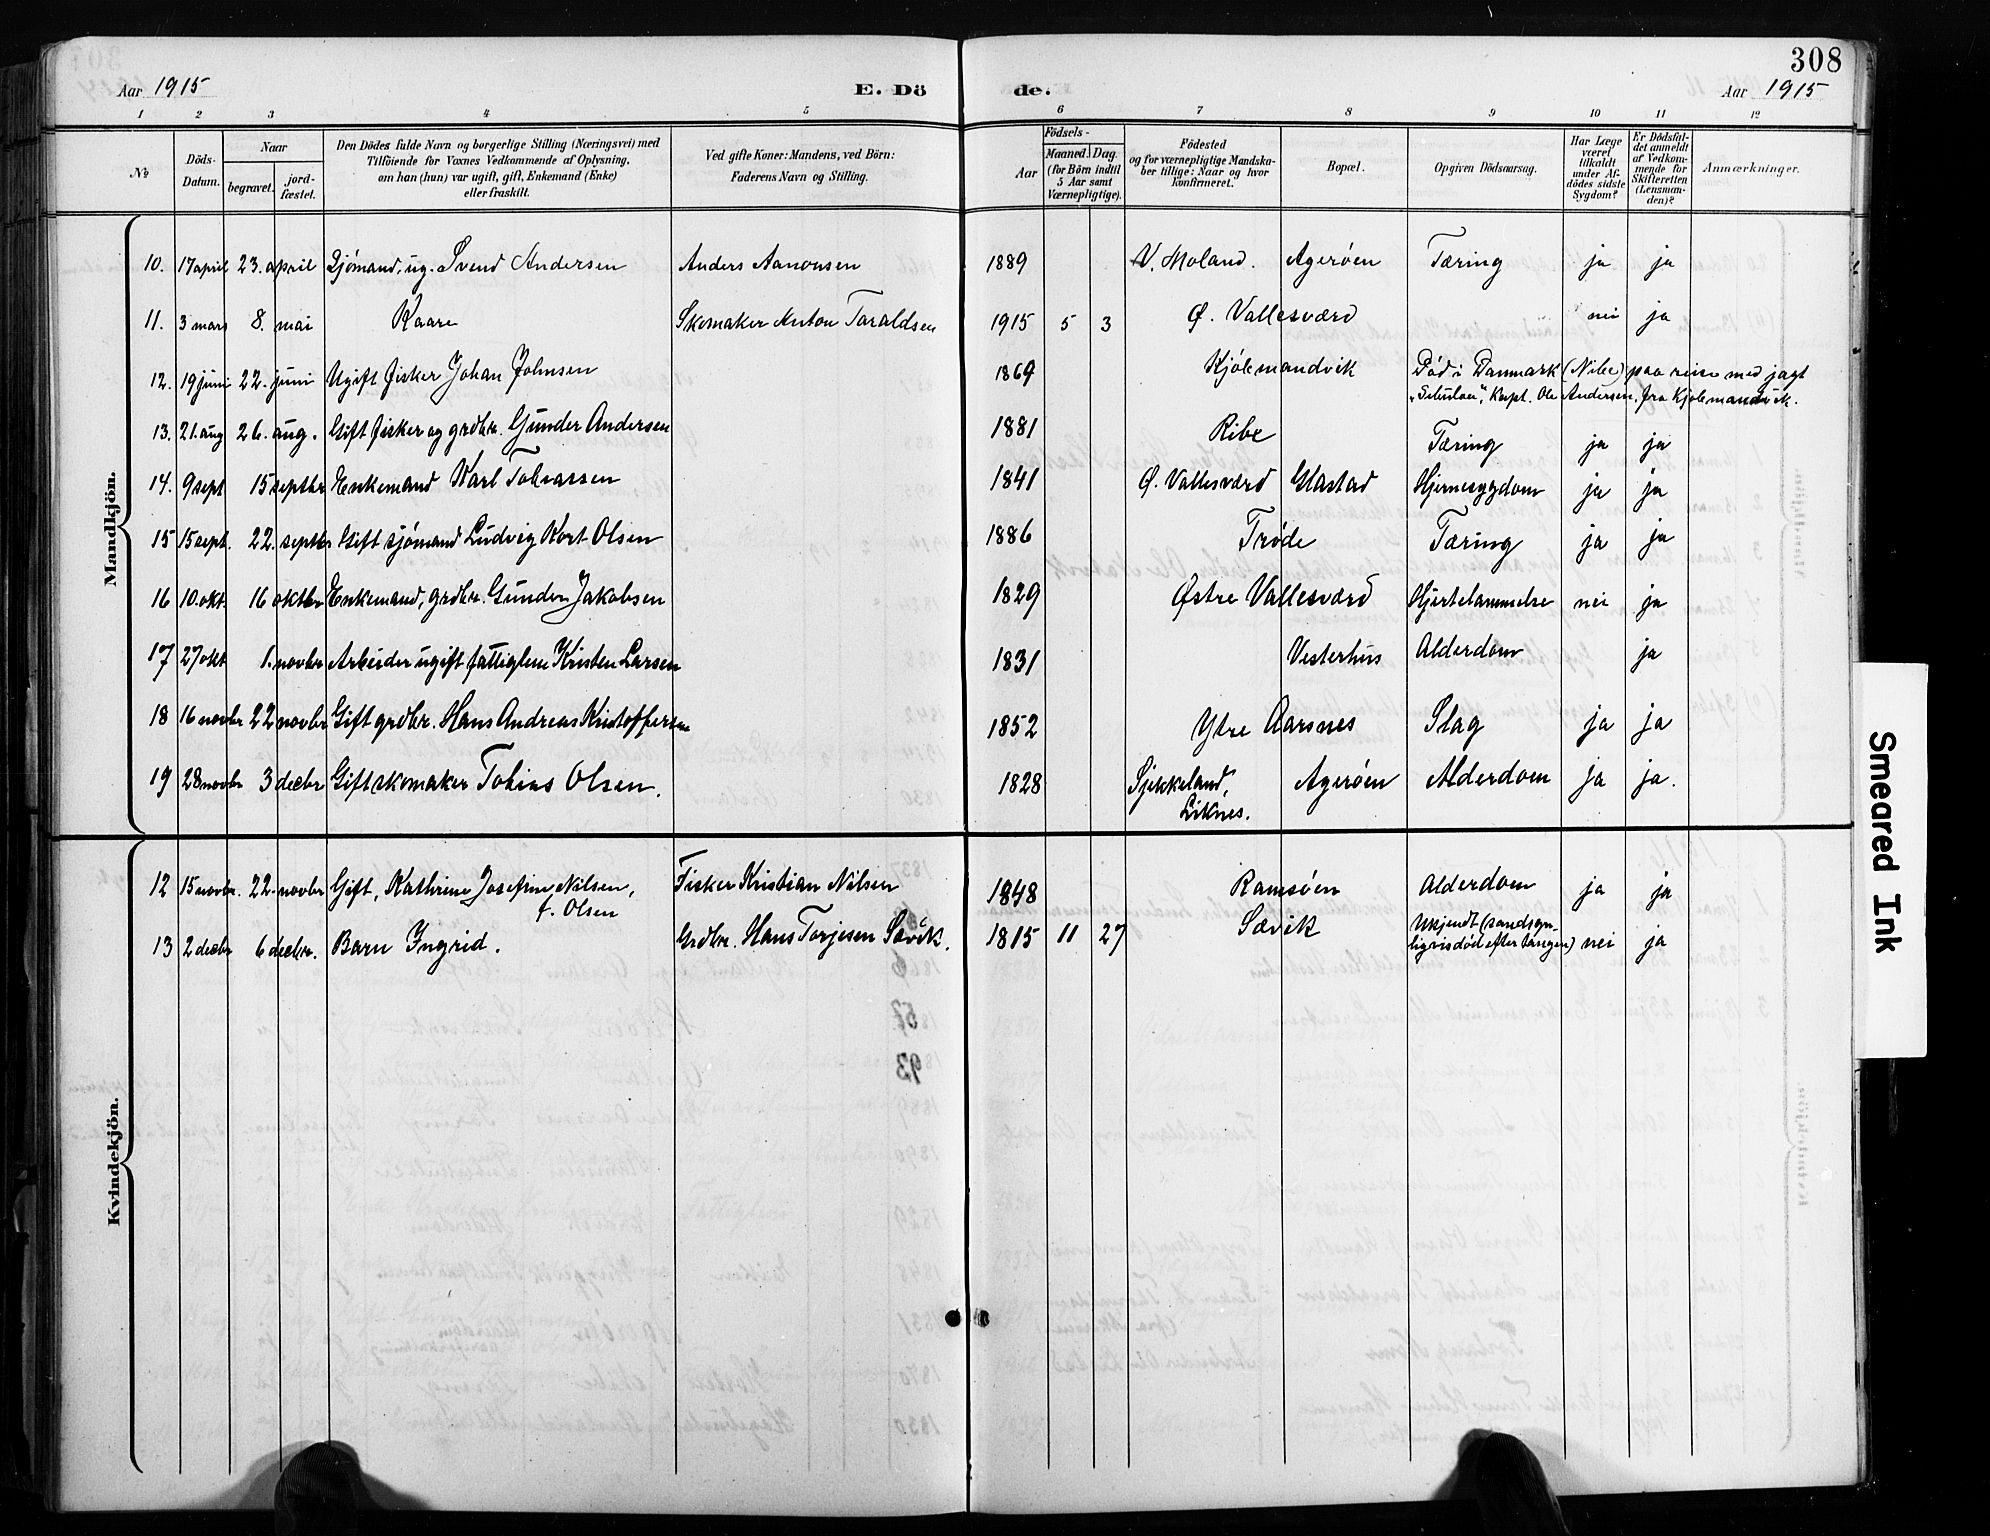 308
Aar 1915 E. Dö de. Aar 1915
1 2 3 4 5 6 7 8 9 10 11 12
№
Döds-Datum.
Naar
begravet.
jord-fæstet.
Den Dödes fulde Navn og borgerlige Stilling (Næringsvei) med
Tilföiende for Voxnes Vedkommende af Oplysning,
om han (hun) var ugift, gift, Enkemand (Enke)
eller fraskilt.
Ved gifte Koner: Mandens, ved Börn:
Faderens Navn og Stilling.
Födsels-
Aar
Maaned. Dag.
(for Börn indtil
5 Aar samt
Værnepligtige).
Födested
og for værnepligtige Mandska-
ber tillige: Naar og hvor
konfirmeret.
Bopæl.
Opgiven Dödsaarsag.
Har Læge
været
tilkaldt
under Af-
dödes sidste
Sygdom?
Er Dödsfal-
det anmeldt
af Vedkom-
mende for
Skifteretten
(Lensman-
den)?
Anmærkninger.
Mandkjön.
10. 17 april 23. april Sjömand, ug. Svend Andersen Anders Aanonsen 1889 V. Moland. Agerøen Tæring ja ja
11. 3 mars 8. mai Kaare Skomaker Anton Taraldsen 1915 5 3 Ø. Vallesværd nei ja
12. 19 juni 22. juni Ugift fisker Johan Johnsen 1869 Kjöbmandvik Död i Danmark (Nibe) paa reise med jagt
Kapt. Ole Andersen, fra Kjöbmandvik.
13. 21. aug 26. aug. Gift fisker og grdbr. Gunder Andersen 1881 Ribe Tæring ja ja
14. 9 sept 15 septbr Enkemand Karl Tobiassen 1841 Ø. Vallesværd Glastad Hjernesygdom ja ja
15 15 sept. 22. septbr Gift sjömand Ludvig Kort Olsen 1886 Trøde Tæring ja ja
16 10. okt. 16 oktbr Enkemand, grdbr. Gunder Jakobsen 1829 Østre Vallesværd Hjertelammelse nei ja
17 27 okt 1. novbr Arbeider ugift fattiglem Kristen Larsen 1831 Vesterhus Alderdom ja
18 16 novbr 22 novbr Gift grdbr. Hans Andreas Kristoffersen 1852 Ytre Aarsnes Slag ja ja
19 28 novbr 3 decbr Gift skomaker Tobias Olsen. 1828 Sjekkeland, Agerøen Alderdom ja ja.
Liknes.
Kvindekjön.
12 15 novbr. 22. novbr Gift, Kathrine Josefine Nilsen, Fisker Kristian Nilsen 1848 Ramsöen Alderdom ja ja
f. Olsen
13 2 decbr 6 decbr. Barn Ingrid. Grdbr. Hans Torjesen Sævik. 1815 11 27 Sævik Ukjendt (sandsyn-
ligvis död efter tangen) nei ja
Smeared Ink